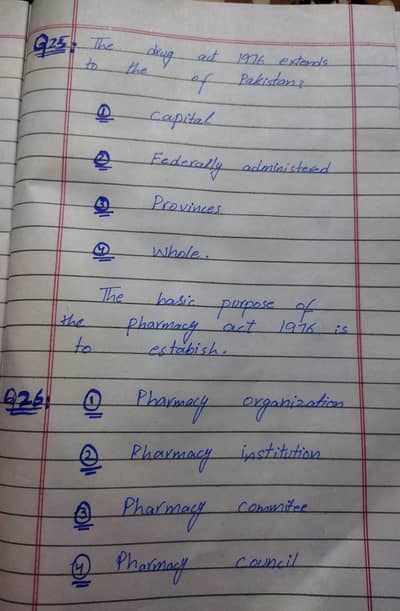 Q25: The drug act 1976 extends
to the of Pakistan:
① Capital
② Federally administered
③ Provinces
④ Whole.
The basic purpose of
the pharmacy act 1976 is
to estabish.
Q26: ① Pharmacy organization
② Pharmacy institution
③ Pharmacy commitee
④ Pharmacy council